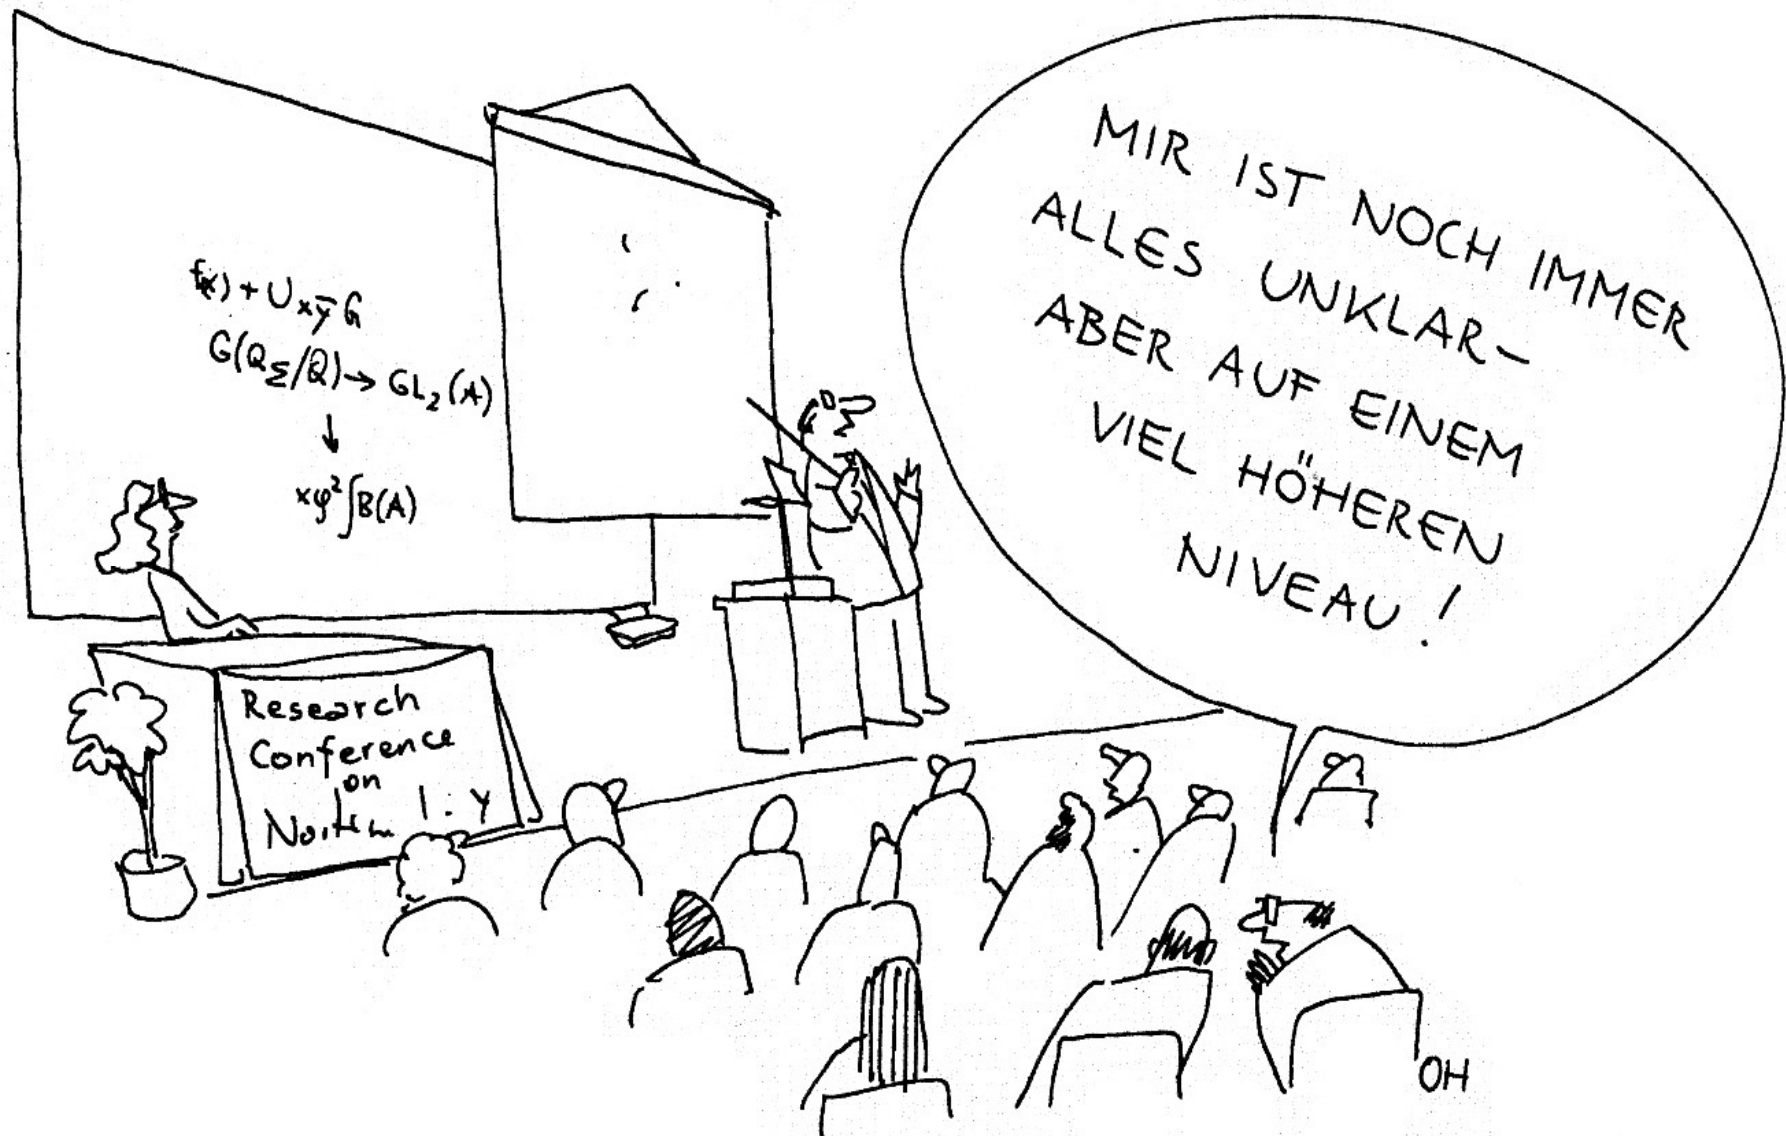 f(x) + U x ȳ G
G(Q_Σ/Q) → GL₂(A)
↓
xφ² ∫B(A)
MIR IST NOCH IMMER
ALLES UNKLAR–
ABER AUF EINEM
VIEL HÖHEREN
NIVEAU!
Research
Conference
on
OH